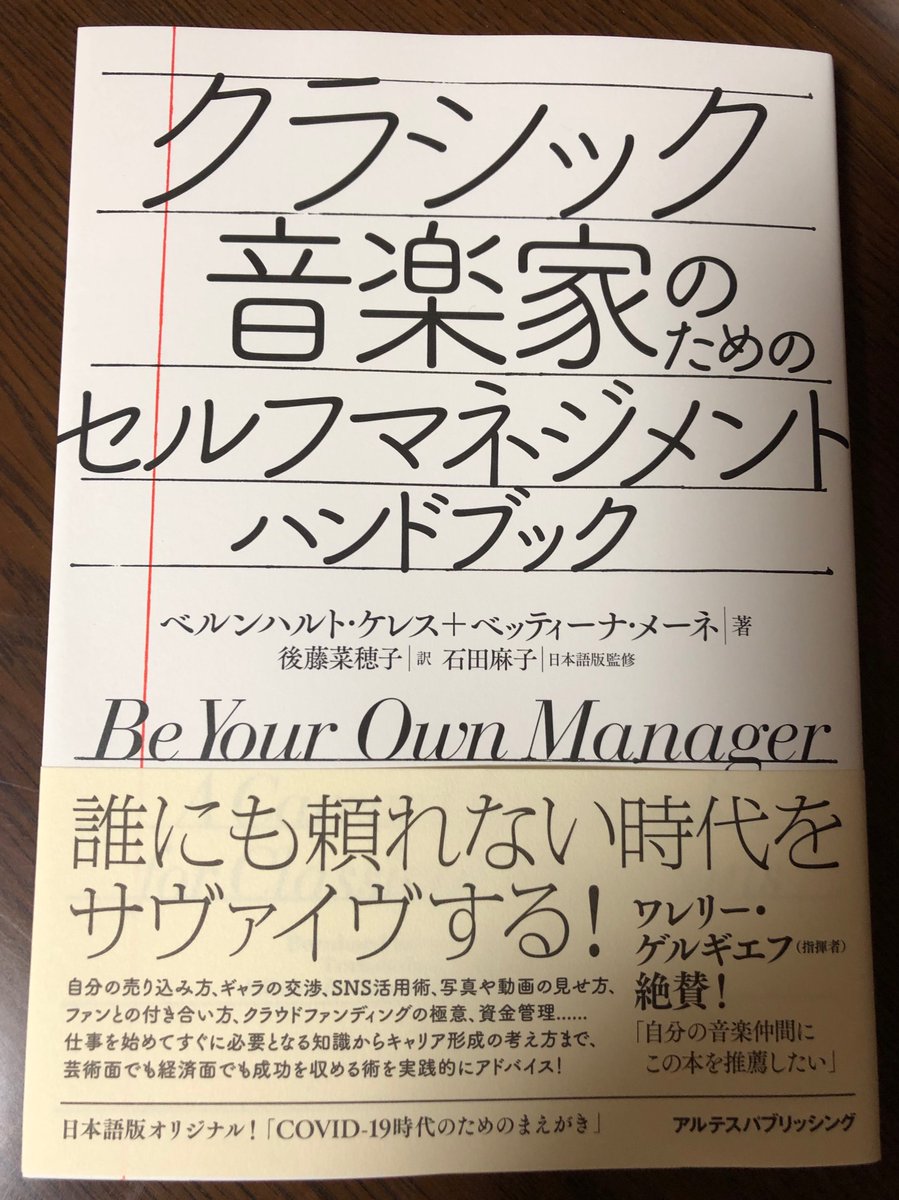 クラシック
音楽家のための
セルフマネジメント
ハンドブック
ベルンハルト・ケレス＋ベッティーナ・メーネ｜著
後藤菜穂子｜訳 石田麻子｜日本語版監修
Be Your Own Manager
誰にも頼れない時代を
サヴァイヴする！
ワレリー・
ゲルギエフ（指揮者）
絶賛！
「自分の音楽仲間に
この本を推薦したい」
自分の売り込み方、ギャラの交渉、SNS活用術、写真や動画の見せ方、
ファンとの付き合い方、クラウドファンディングの極意、資金管理……
仕事を始めてすぐに必要となる知識からキャリア形成の考え方まで、
芸術面でも経済面でも成功を収める術を実践的にアドバイス！
日本語版オリジナル！「COVID-19時代のためのまえがき」
アルテスパブリッシング